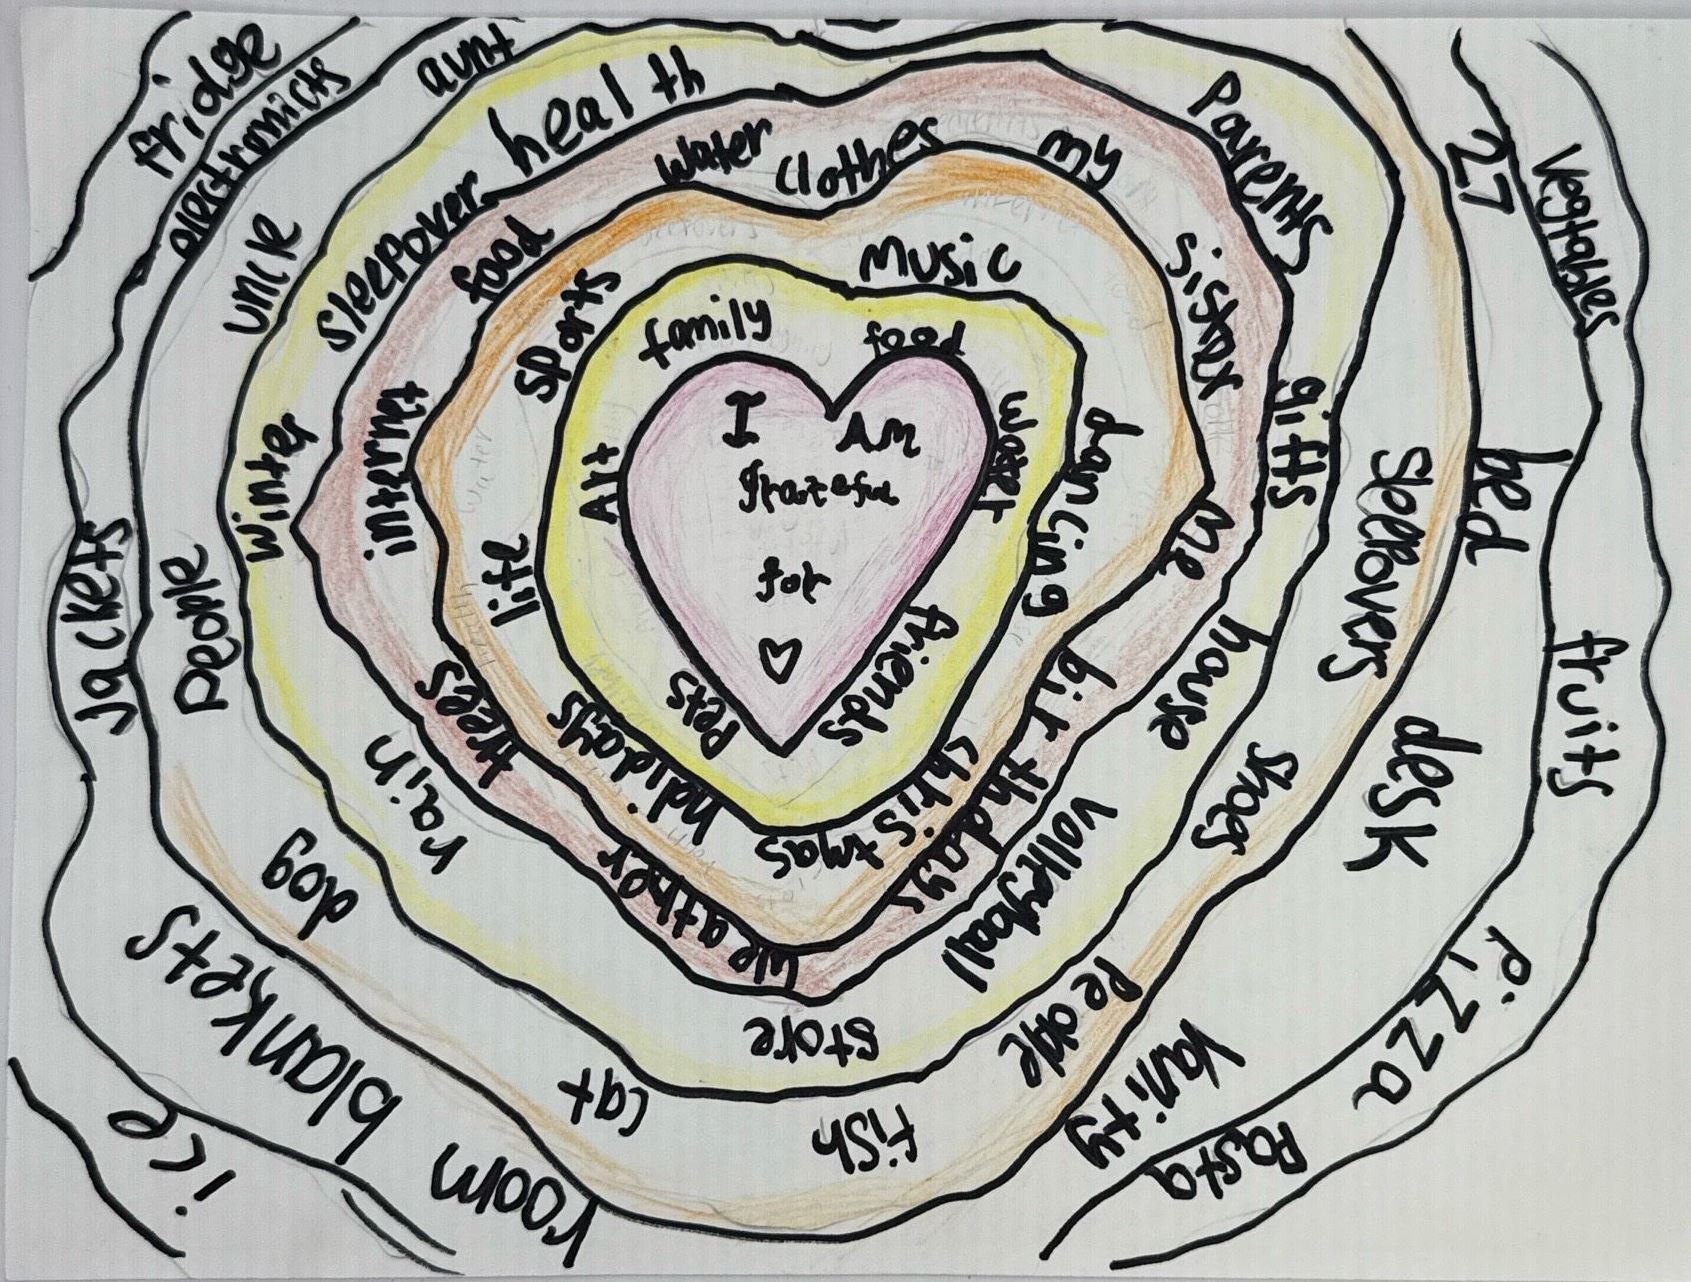 I AM
grateful
for
family
food
water
friends
Pets
Art
music
dancing
christmas
holidays
life
sports
water
clothes
my
sister
me
birthdays
weather
trees
internet
food
health
Parents
gifts
house
volleyball
store
rain
winter
sleepover
aunt
Sleepovers
shoes
People
fish
cat
dog
people
uncle
27
bed
desk
Vanity
room
blankets
Jackets
electronicts
Vegtables
fruits
Pizza
Pasta
ice
fridge